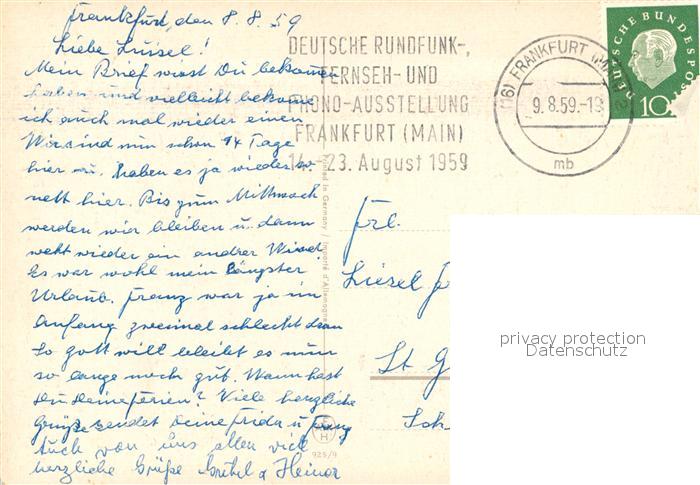 Frankfurt, den 8.8.59
Liebe Luisel!
Mein Brief wirst Du bekommen
haben und vielleicht bekomme
ich auch mal wieder einen
Wir sind nun schon 14 Tage
hier u. haben es ja wieder so
nett hier. Bis zum Mittwoch
werden wir bleiben u. dann
weht wieder ein andrer Wind.
Es war wohl mein längster
Urlaub. Franz war ja im
Anfang zweimal schlecht dran
So Gott will bleibt es nun
so lange noch gut. Wann hast
Du Deine Ferien? Viele herzliche
Grüße sendet Deine Frida u. Franz
Auch von uns allen viel
herzliche Grüße Gretel & Heiner
DEUTSCHE RUNDFUNK-,
FERNSEH- UND
PHONO-AUSSTELLUNG
FRANKFURT (MAIN)
14.-23. August 1959
(16) FRANKFURT (MAIN) 2
9.8.59.-18
mb
DEUTSCHE BUNDESPOST
10
Printed in Germany / Importé d'Allemagne
Frl.
Liesel
St. G
Sch
S
H
925/9
privacy protection
Datenschutz